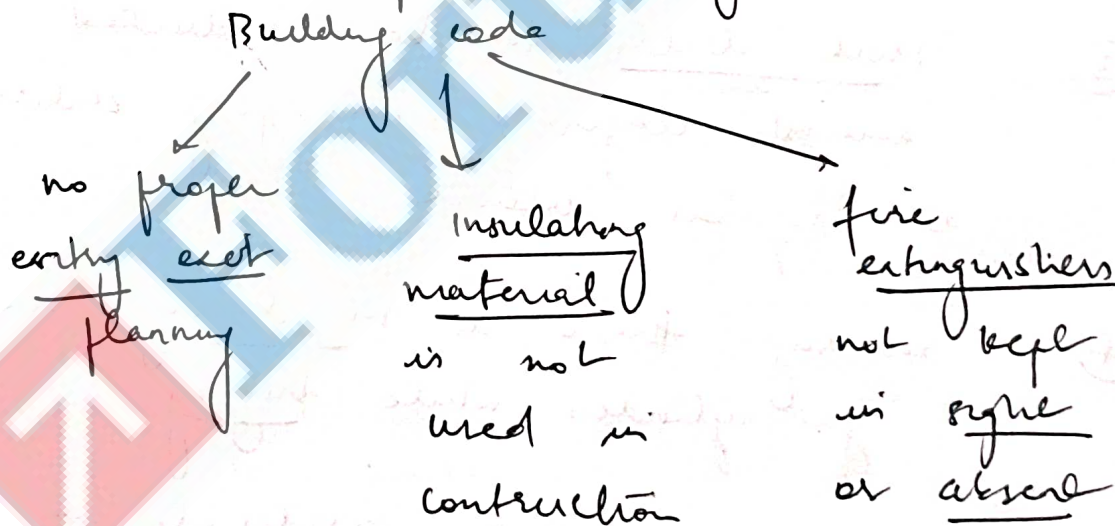 Building code
no proper
entry exit
planning
Insulating
material
is not
used in
contruction
fire
extinguishers
not kept
in sight
or absent
For